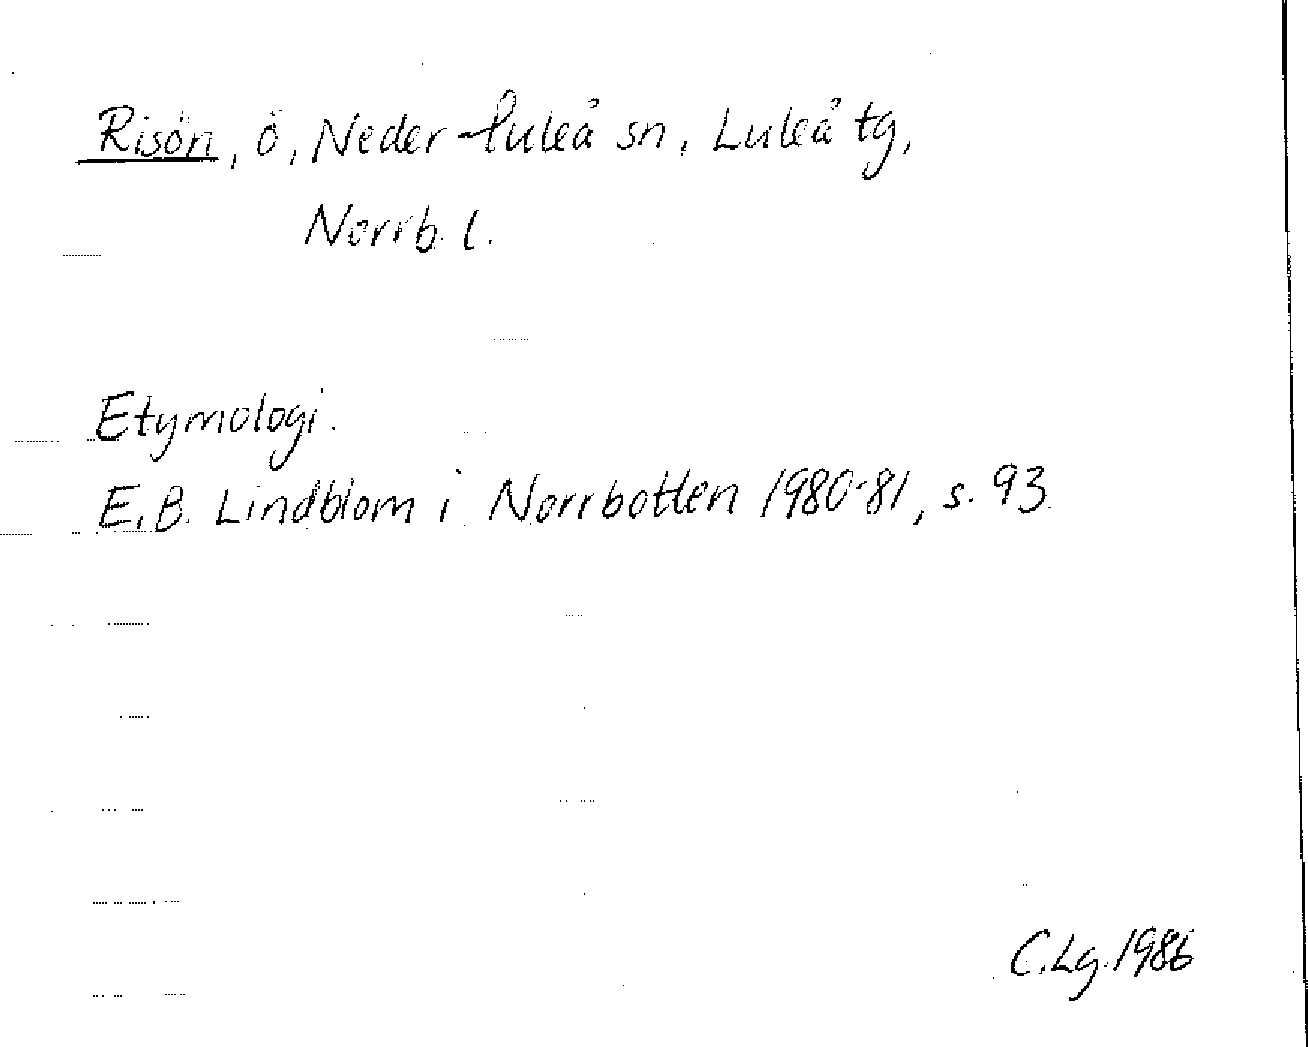 Risön, ö, Neder-Luleå sn, Luleå tg,
Norrb. l.
Etymologi.
E.B. Lindblom i Norrbotten 1980-81, s. 93.
C.Lg. 1986